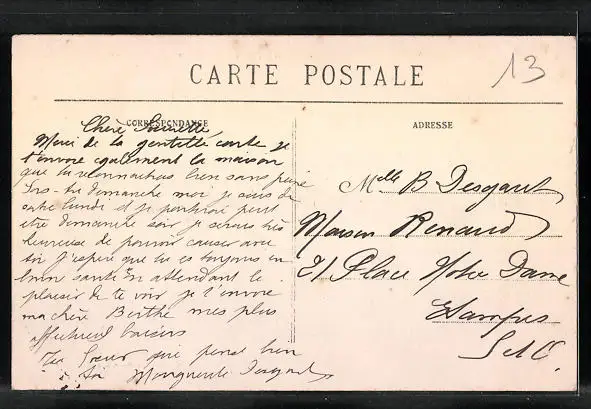 13
CARTE POSTALE
CORRESPONDANCE
ADRESSE
Chère Soeurette
Merci de ta gentille carte je
t'envoie également la maison
que tu reconnaitras bien sans peine
dimanche moi je suis de
lundi et je partirai peut
etre dimanche soir je serais très
heureuse de pouvoir causer avec
toi J'espère que tu es toujours en
bonne santé En attendant le
plaisir de te voir je t'envoie
ma chère Berthe mes plus
affectueux baisers
Ta Soeur qui pense bien
à toi Marguerite Desgault
Melle B Desgault
Maison Renaud
21 Place Notre Dame
Etampes
S et O.